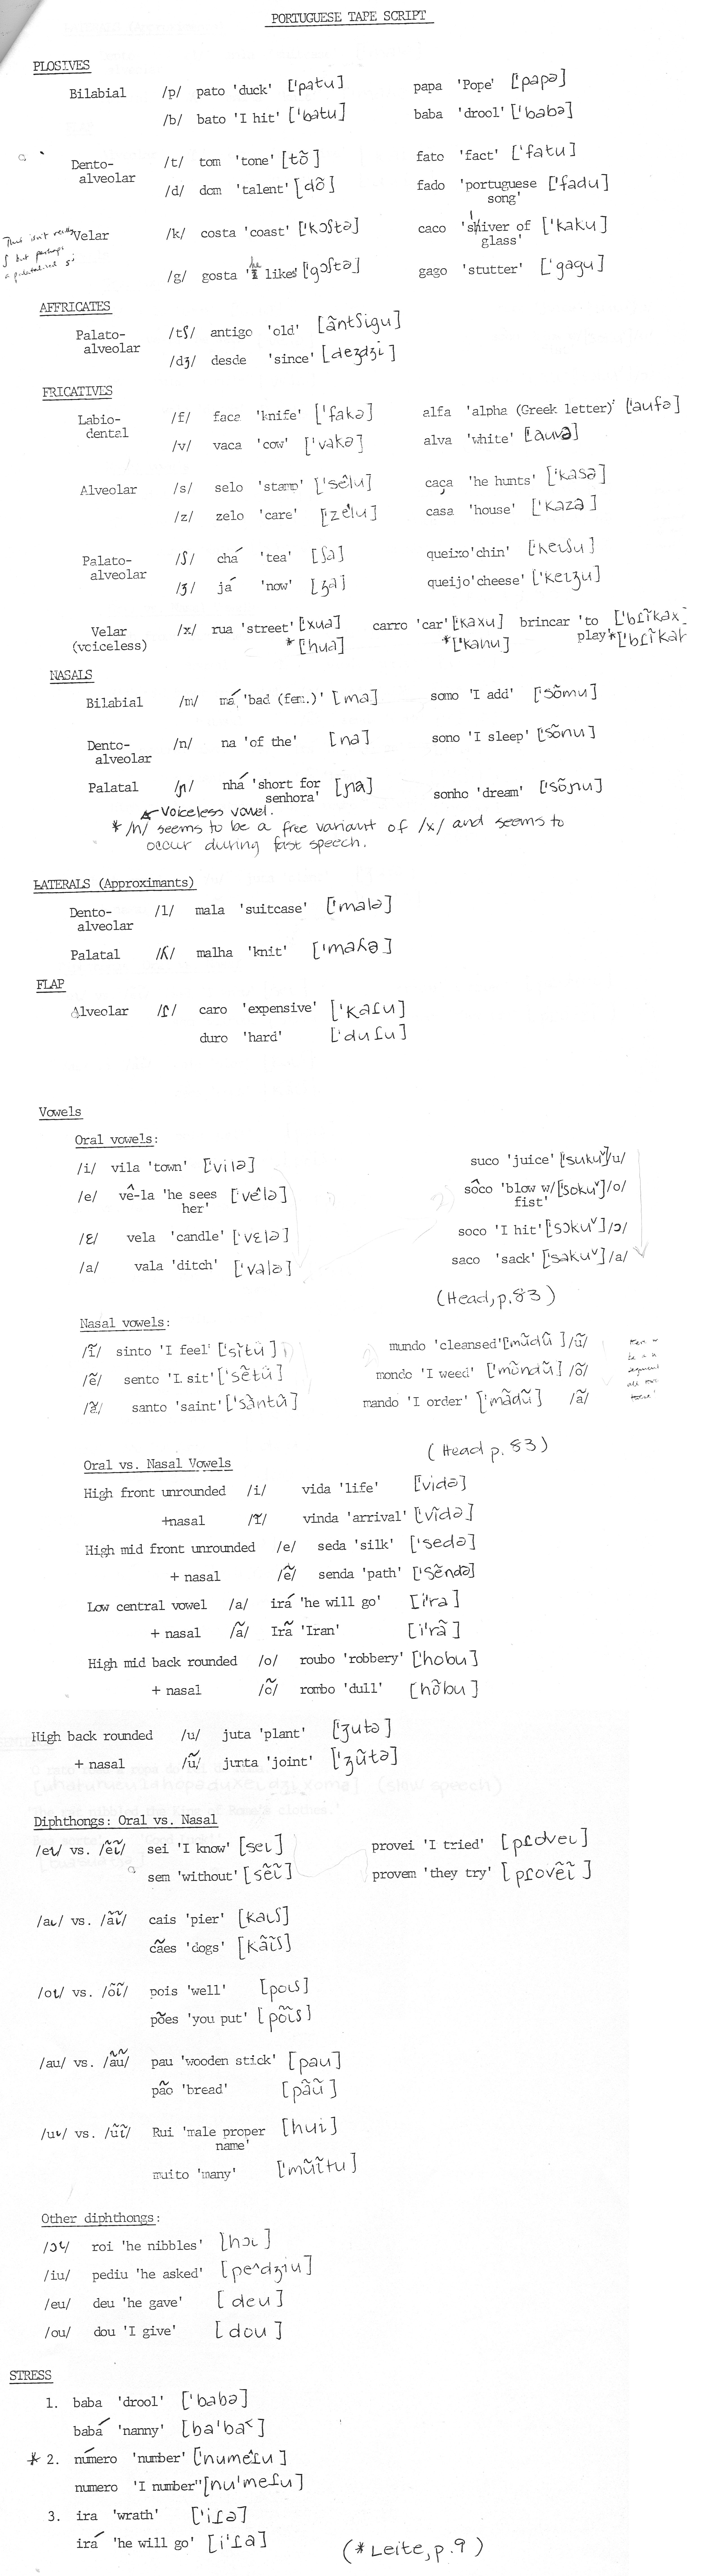 PORTUGUESE TAPE SCRIPT
PLOSIVES
Bilabial /p/ pato 'duck' ['patu] papa 'Pope' ['papə]
/b/ bato 'I hit' ['batu] baba 'drool' ['babə]
Dento-alveolar /t/ tom 'tone' [tõ] fato 'fact' ['fatu]
/d/ dom 'talent' [dõ] fado 'portuguese song' ['fadu]
This isn't really ʃ but perhaps a palatalized s
Velar /k/ costa 'coast' ['kɔʃtə] caco 'sliver of glass' ['kaku]
/g/ gosta 'he likes' ['gɔʃtə] gago 'stutter' ['gagu]
AFFRICATES
Palato-alveolar /tʃ/ antigo 'old' [ãntʃigu]
/dʒ/ desde 'since' [deʒdʒi]
FRICATIVES
Labio-dental /f/ faca 'knife' ['fakə] alfa 'alpha (Greek letter)' ['aufə]
/v/ vaca 'cow' ['vakə] alva 'white' ['auvə]
Alveolar /s/ selo 'stamp' ['sêlu] caça 'he hunts' ['kasə]
/z/ zelo 'care' [zêlu] casa 'house' ['kaza]
Palato-alveolar /ʃ/ chá 'tea' [ʃa] queixo 'chin' ['keiʃu]
/ʒ/ já 'now' [ʒa] queijo 'cheese' ['keiʒu]
Velar (voiceless) /x/ rua 'street' ['xua] carro 'car' ['kaxu] brincar 'to play' ['bɾĩkax]
*['hua] *['kahu] *['bɾĩkah]
NASALS
Bilabial /m/ má 'bad (fem.)' [ma] somo 'I add' ['sõmu]
Dento-alveolar /n/ na 'of the' [na] sono 'I sleep' ['sõnu]
Palatal /ɲ/ nhá 'short for senhora' [ɲa] sonho 'dream' ['sõɲu]
Voiceless vowel.
* /h/ seems to be a free variant of /x/ and seems to
occur during fast speech.
LATERALS (Approximants)
Dento-alveolar /l/ mala 'suitcase' ['malə]
Palatal /ʎ/ malha 'knit' ['maʎə]
FLAP
Alveolar /ɾ/ caro 'expensive' ['kaɾu]
duro 'hard' ['duɾu]
Vowels
Oral vowels:
/i/ vila 'town' ['vilə] suco 'juice' ['sukuᵛ] /u/
/e/ vê-la 'he sees her' ['vêlə] sôco 'blow w/ fist' ['sokuᵛ] /o/
/ɛ/ vela 'candle' ['vɛlə] soco 'I hit' ['sɔkuᵛ] /ɔ/
/a/ vala 'ditch' ['valə] saco 'sack' ['sakuᵛ] /a/
(Head, p.83)
Nasal vowels:
/ĩ/ sinto 'I feel' ['sĩtu] mundo 'cleansed' [mũdũ] /ũ/
/ẽ/ sento 'I sit' ['sẽtũ] mondo 'I weed' ['mõndũ] /õ/
/ã/ santo 'saint' ['sãntũ] mando 'I order' ['mãdũ] /ã/
(Head p. 83)
Oral vs. Nasal Vowels
High front unrounded /i/ vida 'life' ['vidə]
+nasal /ĩ/ vinda 'arrival' ['vĩdə]
High mid front unrounded /e/ seda 'silk' ['sedə]
+ nasal /ẽ/ senda 'path' ['sẽndə]
Low central vowel /a/ irá 'he will go' [i'ra]
+ nasal /ã/ Irã 'Iran' [i'rã]
High mid back rounded /o/ roubo 'robbery' ['hobu]
+ nasal /õ/ rombo 'dull' [hõbu]
High back rounded /u/ juta 'plant' ['ʒutə]
+ nasal /ũ/ junta 'joint' ['ʒũtə]
Diphthongs: Oral vs. Nasal
/eɩ/ vs. /ẽɩ̃/ sei 'I know' [seɩ] provei 'I tried' [pɾoveɩ]
sem 'without' [sẽɩ̃] provem 'they try' [pɾovẽĩ]
/aɩ/ vs. /ãɩ̃/ cais 'pier' [kaɩʃ]
cães 'dogs' [kãɩ̃ʃ]
/oɩ/ vs. /õɩ̃/ pois 'well' [poɩs]
pões 'you put' [põɩ̃s]
/au/ vs. /ãũ/ pau 'wooden stick' [pau]
pão 'bread' [pãũ]
/uɩ/ vs. /ũɩ̃/ Rui 'male proper name' [hui]
muito 'many' ['mũĩtu]
Other diphthongs:
/ɔɩ/ roi 'he nibbles' [hɔɩ]
/iu/ pediu 'he asked' [pe^dʒiu]
/eu/ deu 'he gave' [deu]
/ou/ dou 'I give' [dou]
STRESS
1. baba 'drool' ['babə]
babá 'nanny' [ba'ba˂]
* 2. número 'number' ['numeɾu]
numero 'I number' [nu'meɾu]
3. ira 'wrath' ['iɾə]
irá 'he will go' [i'ɾa]
(*Leite, p.9)